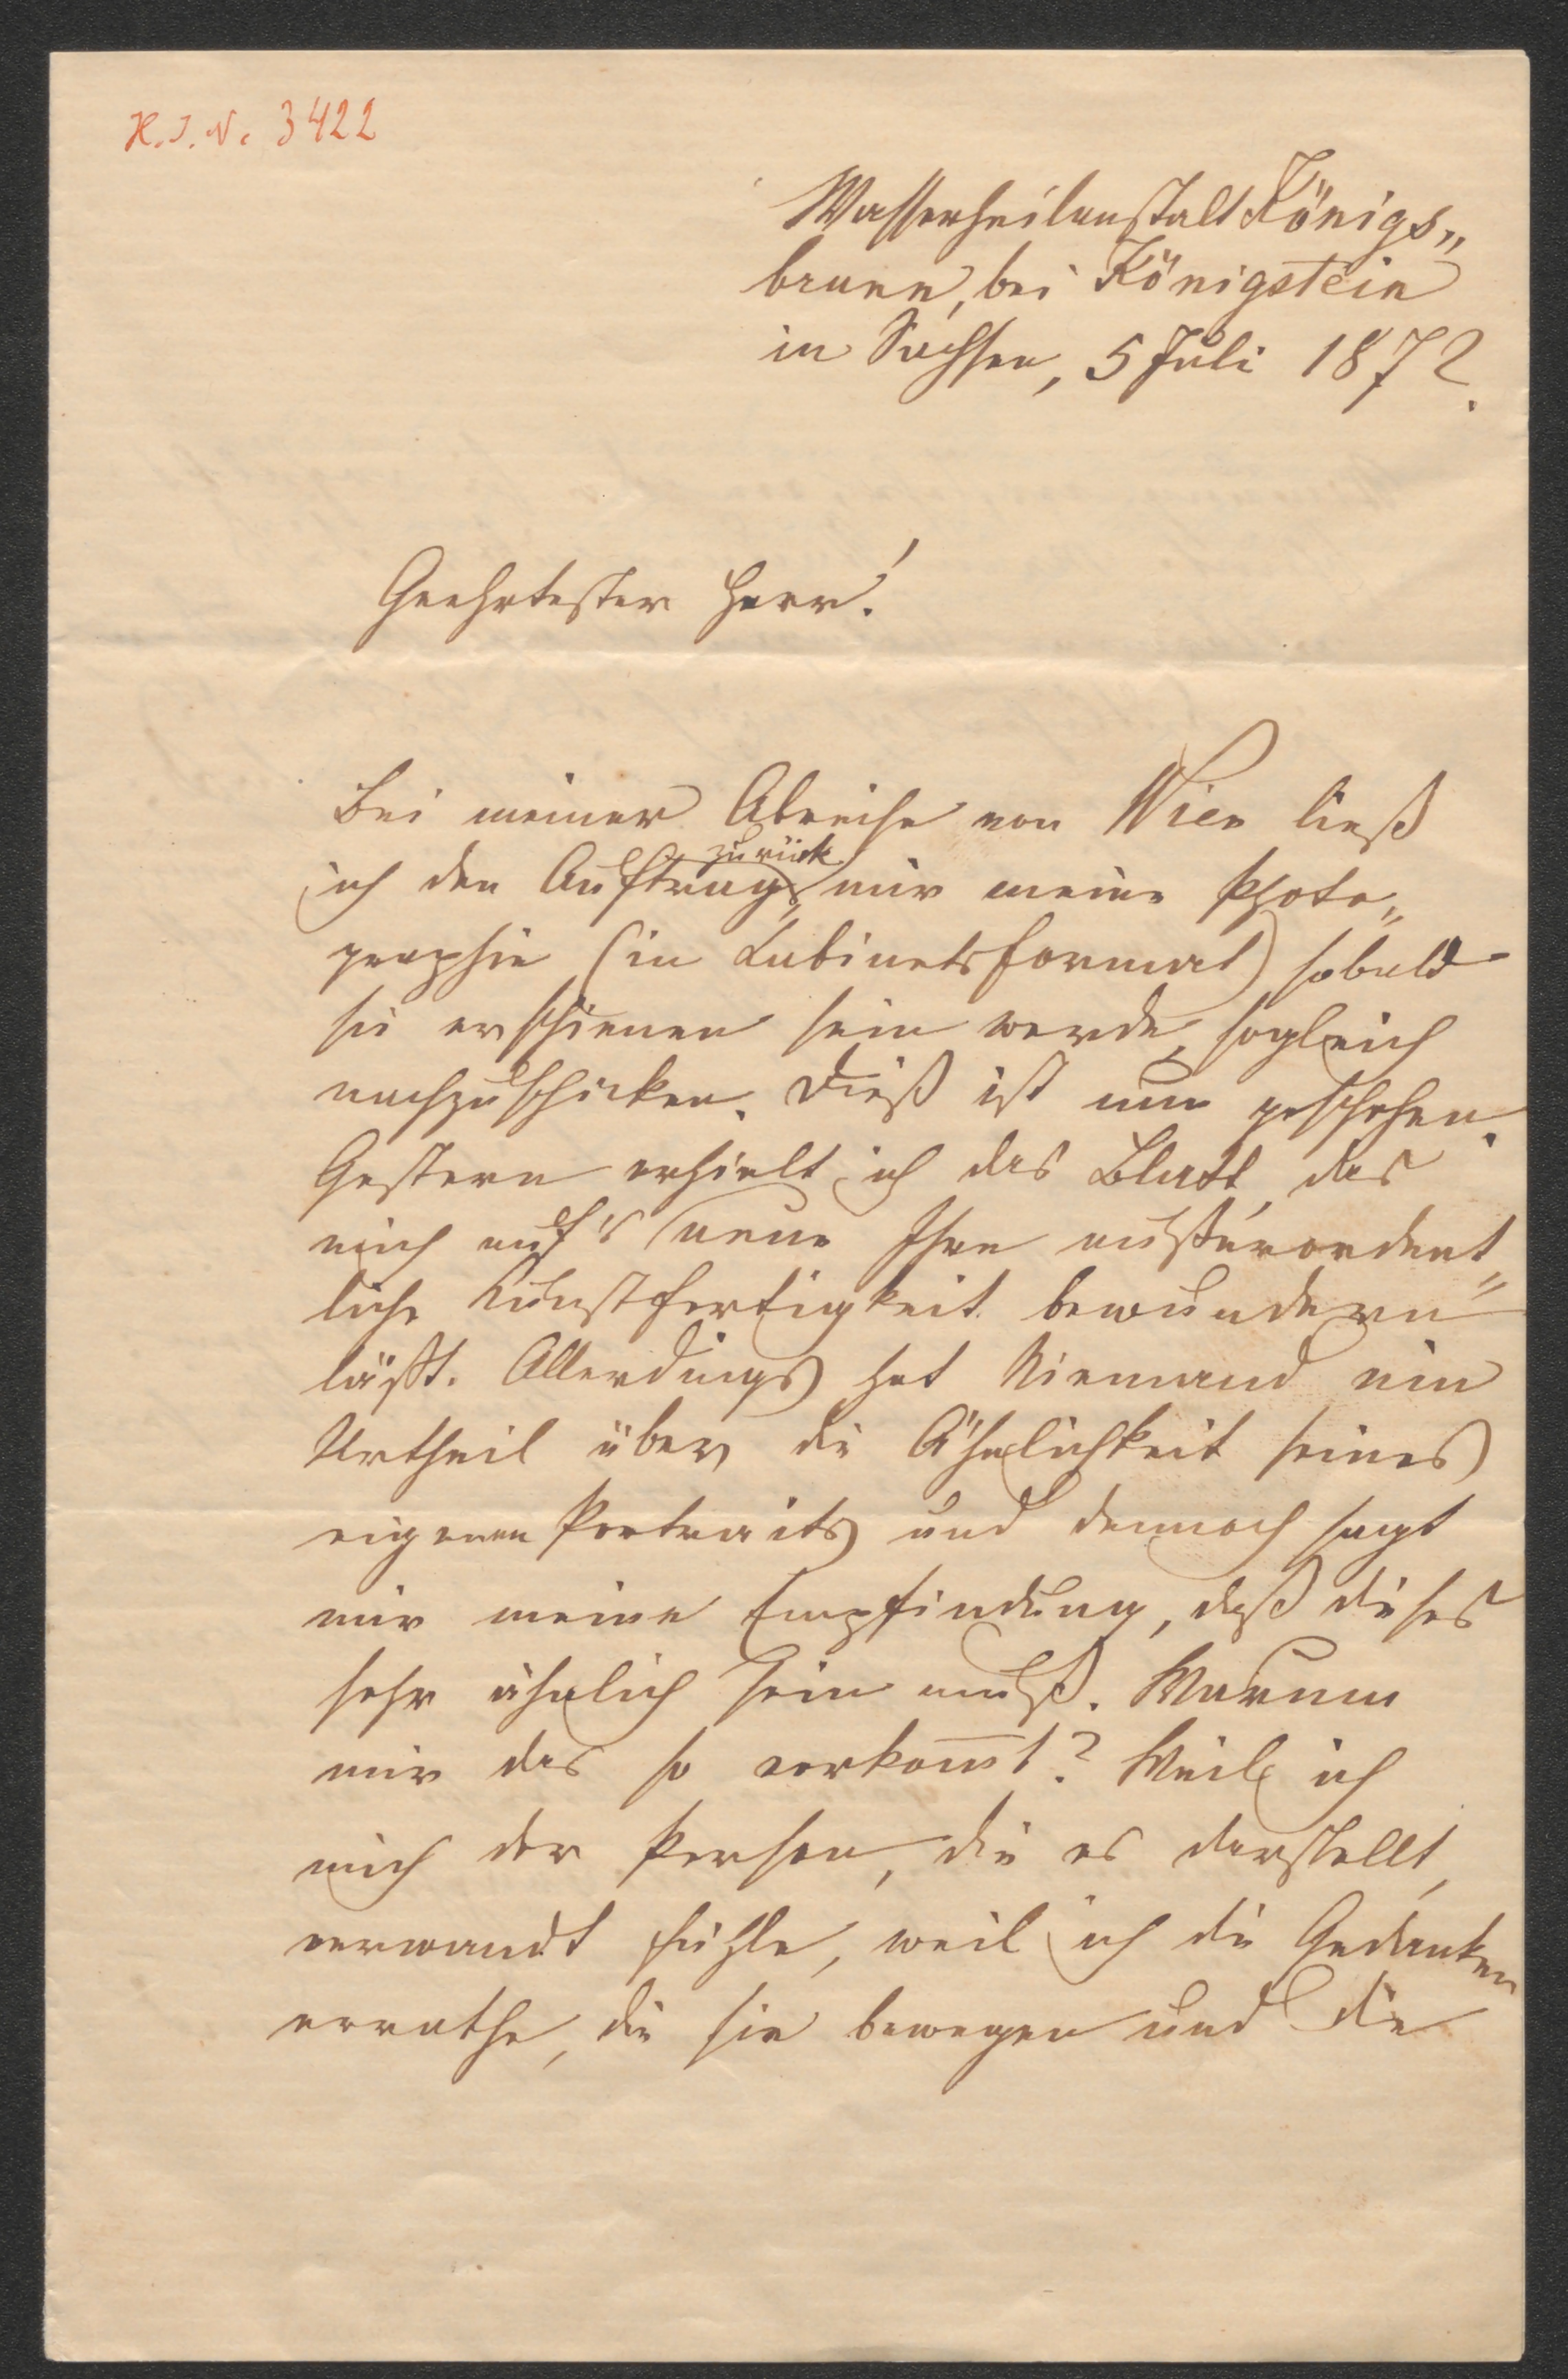 H. I. N. 3422
Wasserheilanstalt Königs„
brunn, bei Königstein
in Sachsen, 5 Juli 1872.
Geehrtester Herr!
Bei meiner Abreise von Wien ließ
zurück
ich den Auftrag, mir meine Photo„
graphie (in Cabinetsformat) sobald
sie erschienen sein werde, sogleich
nachzuschicken. Dieß ist nun geschehen.
Gestern erhielt ich das Blatt, das
mich auf's neue Ihre außerordent„
liche Kunstfertigkeit bewundern
läßt. Allerdings hat Niemand ein
Urtheil über die Ähnlichkeit seines
eigenen Portraits und dennoch sagt
mir meine Empfindung, daß dieses
sehr ähnlich sein muß. Warum
mir das so vorkom̅t? Weil ich
mich der Person, die es darstellt,
verwandt fühle, weil ich die Gedanken
errathe, die sie bewegen und die